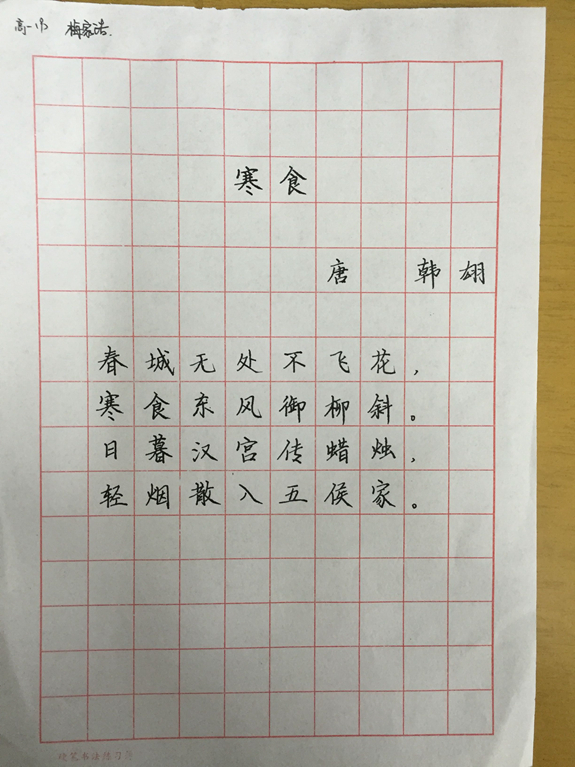 高一(9) 梅家浩.
寒食
唐 韩翃
春城无处不飞花,
寒食东风御柳斜。
日暮汉宫传蜡烛,
轻烟散入五侯家。
硬笔书法练习